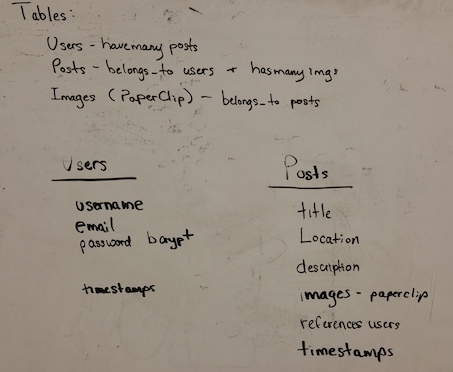 Tables:
Users - have many posts
Posts - belongs_to users + has many imgs
Images (PaperClip) - belongs_to posts
Users
username
email
password bcrypt
timestamps
Posts
title
Location
description
images - paperclip
references users
timestamps